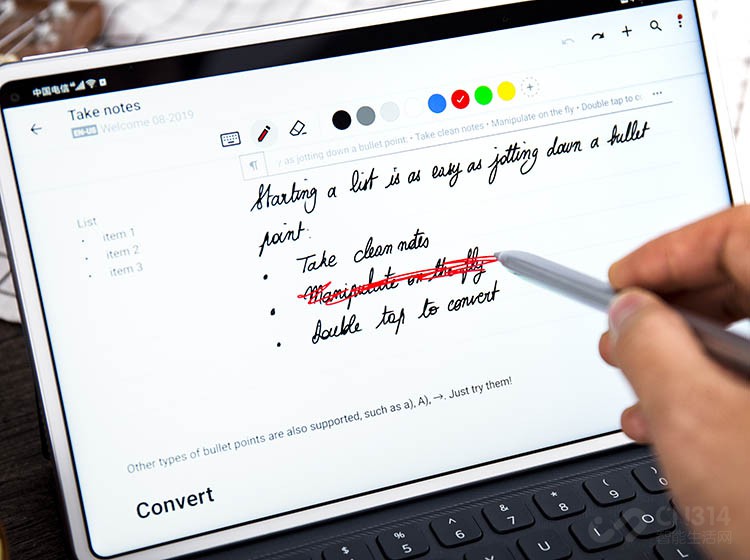 中国电信 4G
Take notes
EN-US Welcome 08-2019
¶
y as jotting down a bullet point: • Take clean notes • Manipulate on the fly • Double tap to co
Starting a list is as easy as jotting down a bullet
point:
List
• item 1
• item 2
• item 3
• Take clean notes
• Manipulate on the fly
• Double tap to convert
Other types of bullet points are also supported, such as a), A), →. Just try them!
Convert
$ % ^ & * ( )
4 5 6 7 8 9 0
U I O L
CN314
智能生活网